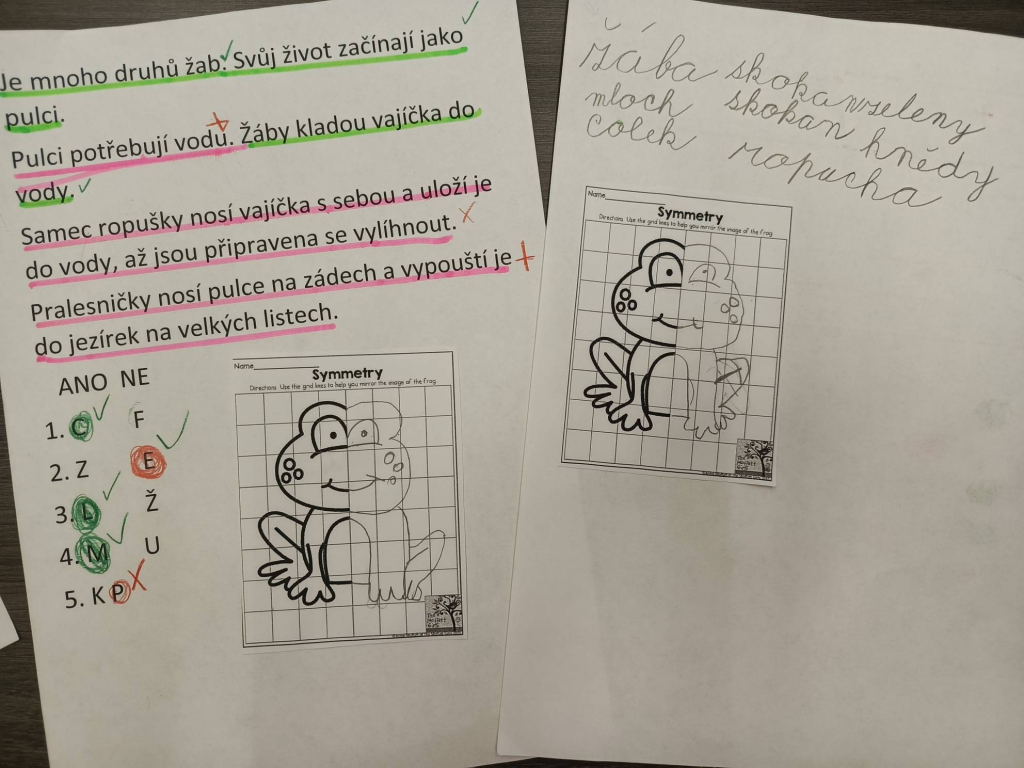 Je mnoho druhů žab. Svůj život začínají jako
pulci.
Pulci potřebují vodu. Žáby kladou vajíčka do
vody.
Samec ropušky nosí vajíčka s sebou a uloží je
do vody, až jsou připravena se vylíhnout.
Pralesničky nosí pulce na zádech a vypouští je
do jezírek na velkých listech.
ANO NE
1. C F
2. Z E
3. L Ž
4. M U
5. K P
Name
Symmetry
Directions Use the grid lines to help you mirror the image of the frog
žába skokan zeleny
mloch skokan hnědy
colek ropucha
Name
Symmetry
Directions Use the grid lines to help you mirror the image of the frog